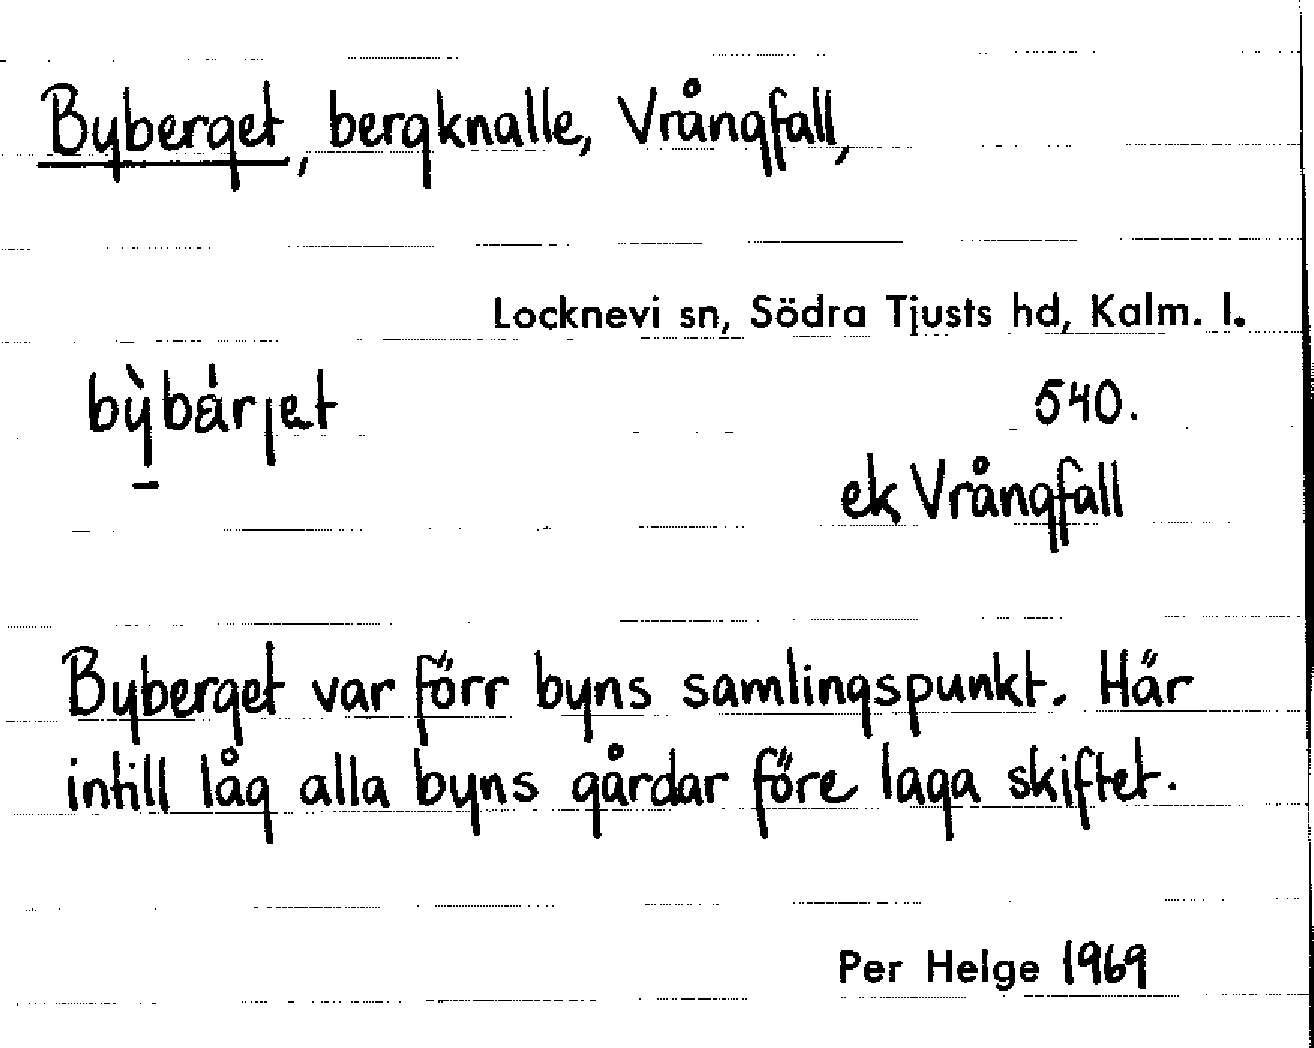 Byberget, bergknalle, Vrångfall,
Locknevi sn, Södra Tjusts hd, Kalm. l.
bỳbärjet 540.
ek Vrångfall
Byberget var förr byns samlingspunkt. Här
intill låg alla byns gårdar före laga skiftet.
Per Helge 1969